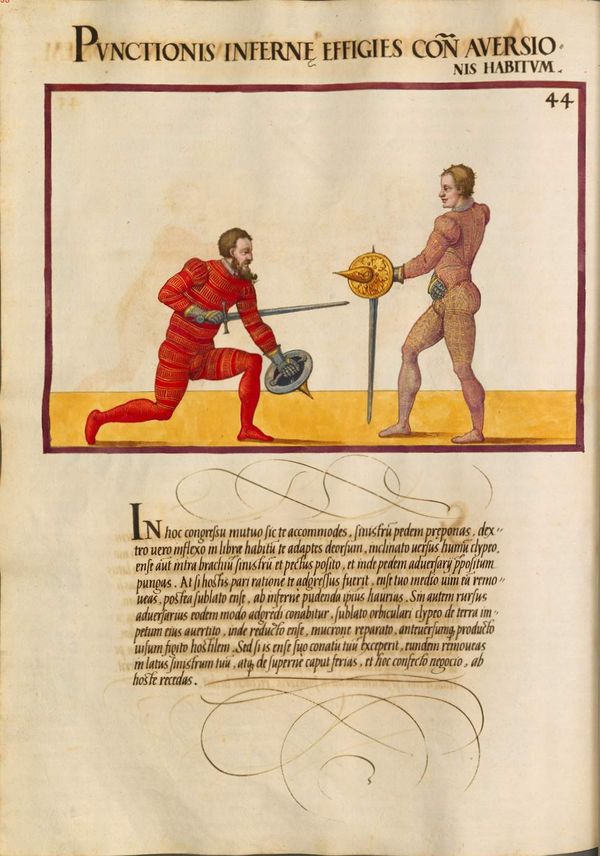 PVNCTIONIS INFERNĘ EFFIGIES COÑ AVERSIO·
NIS HABITVM.
44
IN hoc congressu mutuo sic te accommodes, sinistrũ pedem pręponas, dex-
tro uero inflexo in librę habitũ te adaptes deorsum, inclinato uersus humũ clypeo,
ense aũt intra brachiũ sinistrũ et pectus posito, et inde pedem aduersarÿ prępositum
pungas. At si hostis pari ratione te adgressus fuerit, ense tuo medio uim eã remo-
ueas, postea sublato ense, ab infernę pudenda ipsius haurias. Sin autem rursus
aduersarius eodem modo adgredi conabitur, sublato orbiculari clypeo de terra im-
petum eius auertito, inde reducto ense, mucrone reparato, anteuersumq; producto
uisum figito hostilem, Sed si is ense suo conatũ tuũ exceperit, eundem remoueas
in latus sinistrum tuũ, atq; de superne caput ferias, et hoc confecto negocio, ab
hoste recedas.